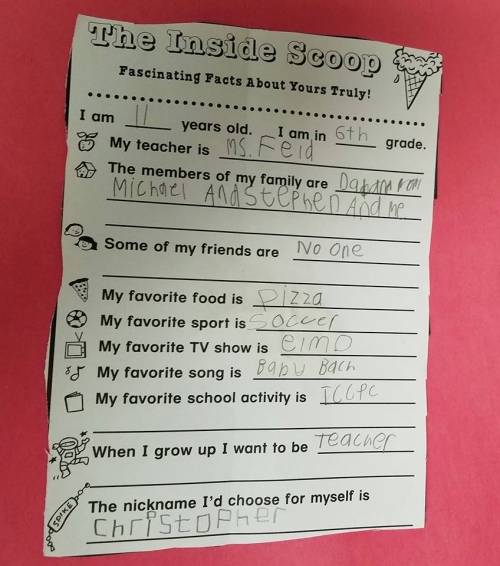 The Inside Scoop
Fascinating Facts About Yours Truly!
I am 11 years old. I am in 6th grade.
My teacher is Ms. Feid
The members of my family are
Michael And Stephen And me
Some of my friends are No one
My favorite food is pizza
My favorite sport is Soccer
My favorite TV show is elmo
My favorite song is Baby Bach
My favorite school activity is
When I grow up I want to be Teacher
The nickname I'd choose for myself is
Christopher
SPIKE